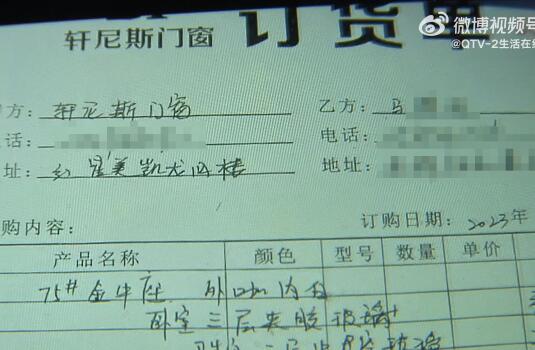 微博视频号
@QTV-2生活在线
轩尼斯门窗 订货单
方: 轩尼斯门窗 乙方: 马
话: 电话:
址: 红星美凯龙四楼 地址:
购内容: 订购日期: 2023年
产品名称 颜色 型号 数量 单价
75# 金牛座 外咖内白
卧室三层夹胶玻璃